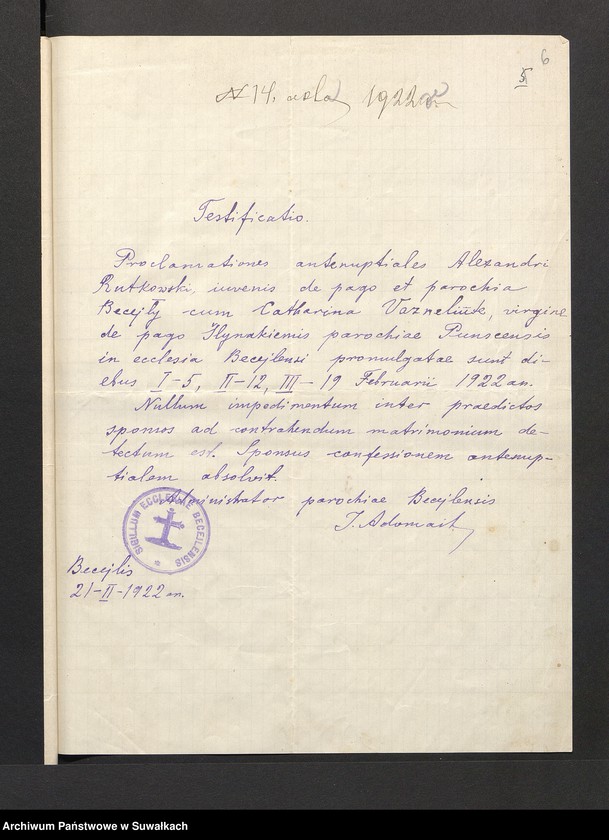 6
5
N 14. 1922
Testificatio.
Proclamationes antenuptiales Alexandri
Rutkowski, iuvenis de pago et parochia
Becejły cum Catharina Vazneliute, virgine
de pago Ilynakiemis parochiae Punscensis
in ecclesia Becejlensi promulgatae sunt di-
ebus I-5, II-12, III-19 Februarii 1922 an.
Nullum impedimentum inter praedictos
sponsos ad contrahendum matrimonium de-
tectum est. Sponsus confessionem antenup-
tialem absolvit.
Administrator parochiae Becejlensis
J. Adomait
SIGILLUM ECCLESIAE BECEJLENSIS
Becejlis
21-II-1922 an.
Archiwum Państwowe w Suwałkach